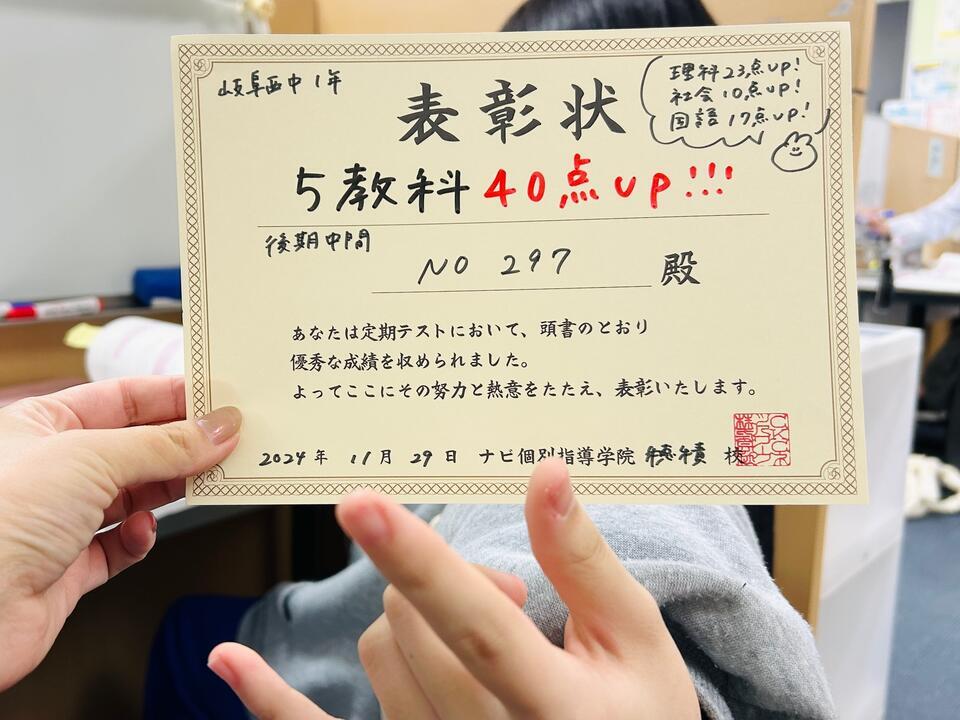 岐阜西中1年
表彰状
理科23点up!
社会10点up!
国語17点up!
5教科40点up!!!
後期中間
NO 297 殿
あなたは定期テストにおいて、頭書のとおり
優秀な成績を収められました。
よってここにその努力と熱意をたたえ、表彰いたします。
2024年 11月 29日 ナビ個別指導学院 穂積 校